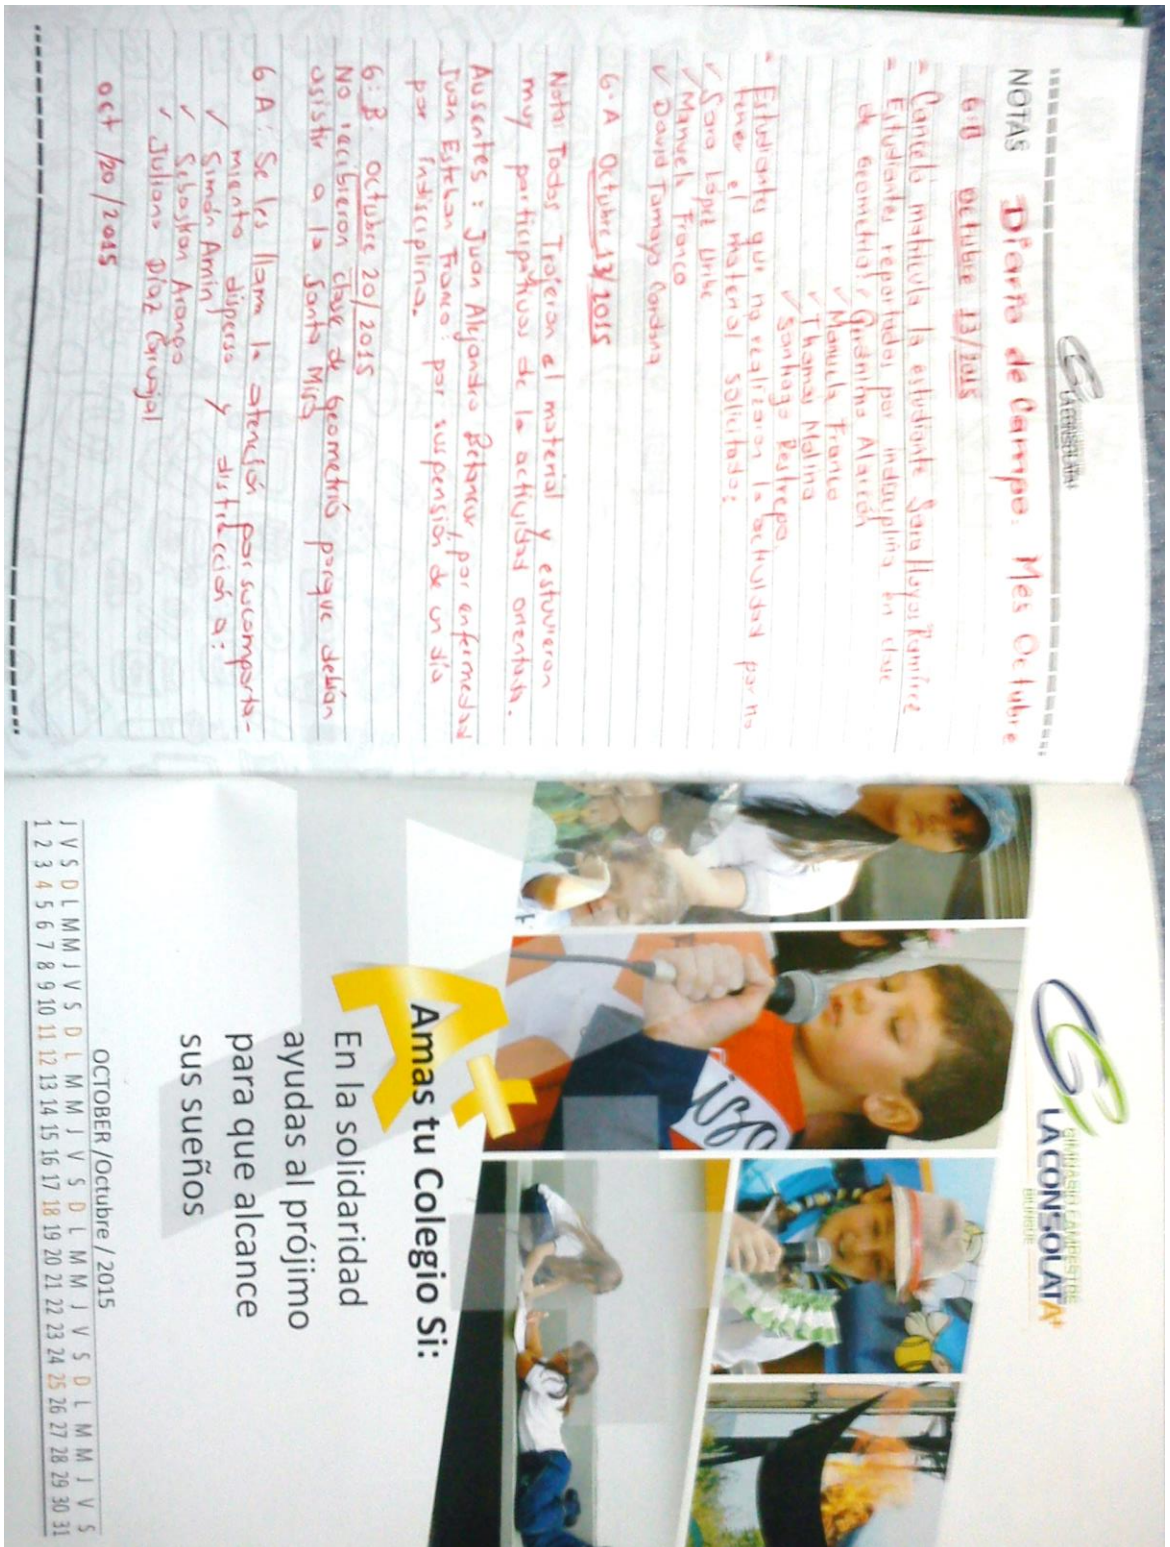 LA CONSOLATA
NOTAS Diario de Campo. Mes Octubre
6:B Octubre 13/2015
- Canceló matrícula la estudiante Sara Hoyos Ramírez
- Estudiantes reportados por indisciplina en clase
de Geometría: ✓ Gerónimo Alarcón
✓ Manuela Franco
✓ Thomas Molina
✓ Santiago Restrepo.
- Estudiantes que no realizaron la actividad por no
tener el material solicitado:
✓ Sara López Uribe
✓ Manuela Franco
✓ David Tamayo Cardona
6-A Octubre 13/2015
Nota: Todos Trajeron el material y estuvieron
muy participativos de la actividad orientada.
Ausentes: Juan Alejandro Betancur, por enfermedad
Juan Esteban Franco: por suspensión de un día
por indisciplina.
6:B. Octubre 20/2015
No recibieron clase de Geometría porque debían
asistir a la Santa Misa
6A: Se les llama la atención por su comporta-
miento disperso y distracción a:
✓ Simón Amin
✓ Sebastian Arango
✓ Juliana Díaz Grisajal
Oct /20/2015
GIMNASIO CAMPESTRE
LA CONSOLATA+
BILINGÜE
A+
Amas tu Colegio Si:
En la solidaridad
ayudas al prójimo
para que alcance
sus sueños
OCTOBER /Octubre / 2015
J V S D L M M J V S D L M M J V S D L M M J V S D L M M J V S
1 2 3 4 5 6 7 8 9 10 11 12 13 14 15 16 17 18 19 20 21 22 23 24 25 26 27 28 29 30 31